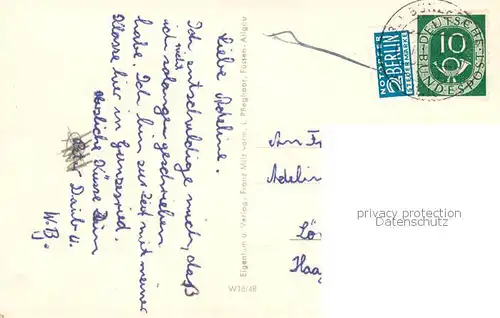 Liebe Adeline.
Ich entschuldige mich, daß
ich solange nicht geschrieben
habe. Ich bin zur Zeit mit meiner
Klasse hier in Gunzesried.
Herzliche Küsse Dein
Peter Daib u.
W. B.
Eigentum u. Verlag, Franz Milz vorm. L. Pfleghaar, Füssen-Allgäu
W16/48
NOTOPFER
2 BERLIN
STEUERMARKE
DEUTSCHE
BUNDESPOST
10
An
Adelin
Lö
Haa
privacy protection
Verwendung